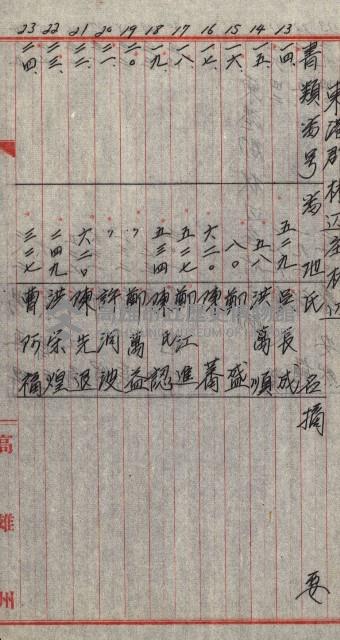 東港郡林辺庄林辺
書類番号 番地 氏名 摘要
13 一四、 五二九 吳長成
14 一五、 五八 洪萬順
15 一六、 八〇 鄭盛
16 一七、 六二〇 陳蕃
17 一八、 五二七 鄭江進
18 一九、 五三四 陳氏認
19 二〇、 〃 鄭萬益
20 二一、 〃 許潤波
21 二二、 六二〇 陳先退
22 二三、 二四九 洪榮煌
23 二四、 三二七 曹阿福
高雄州